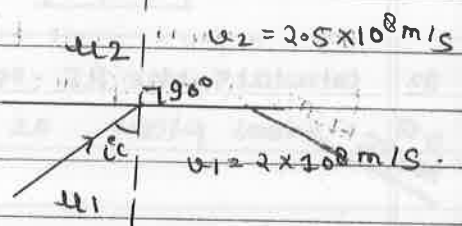 μ2 v2 = 2.5×10⁸ m/s
90°
ic v1 = 2×10⁸ m/s.
μ1